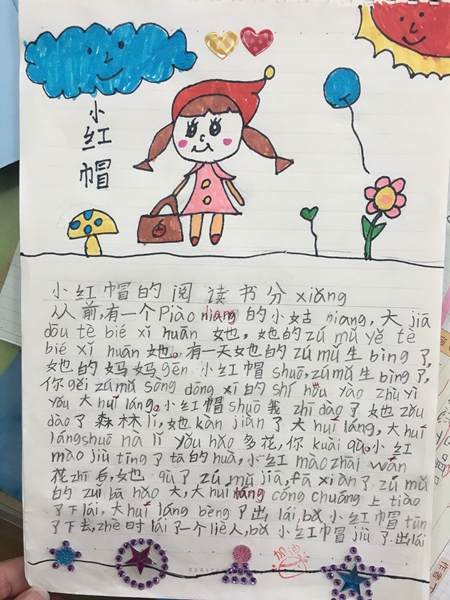 小红帽
小红帽的阅读书分xiǎng
从前,有一个Piào liang的小姑niang,大jiā
dōu tè bié xǐ huān 她,她的zǔ mǔ yě tè
bié xǐ huān 她。有一天她的zǔ mǔ生bìng了,
她的妈妈gēn 小红帽shuō,zǔ mǔ生bìng了,
你gěi zǔ mǔ sòng dōng xi的shí hou yào zhù yì
yǒu 大huī láng。小红帽shuō我zhī dào了她zǒu
dào了森林lǐ,她kàn jiàn了大huī láng,大huī
láng shuō nà lǐ yǒu hǎo 多花,你kuài qù,小红
mào jiù tīng了tā的huà,小红mào zhāi wán
花zhī后,她 qù了zǔ mǔ jiā,fā xiàn了zǔ mǔ
的zuǐ bā hǎo 大,大huī láng cóng chuāng上tiào
了下lái,大huī láng bèng了出lái,bǎ 小红帽tūn
了下去,zhè时lái了一个liè人,bǎ 小红帽jiù了出lái
加油